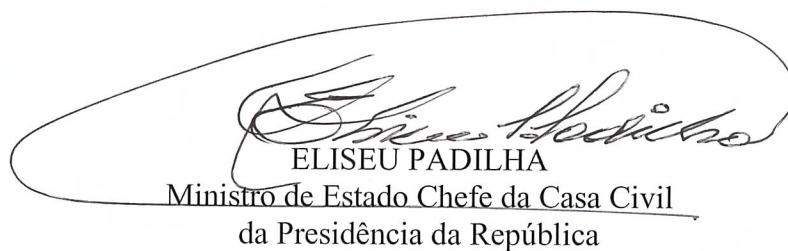 Eliseu Padilha
ELISEU PADILHA
Ministro de Estado Chefe da Casa Civil
da Presidência da República